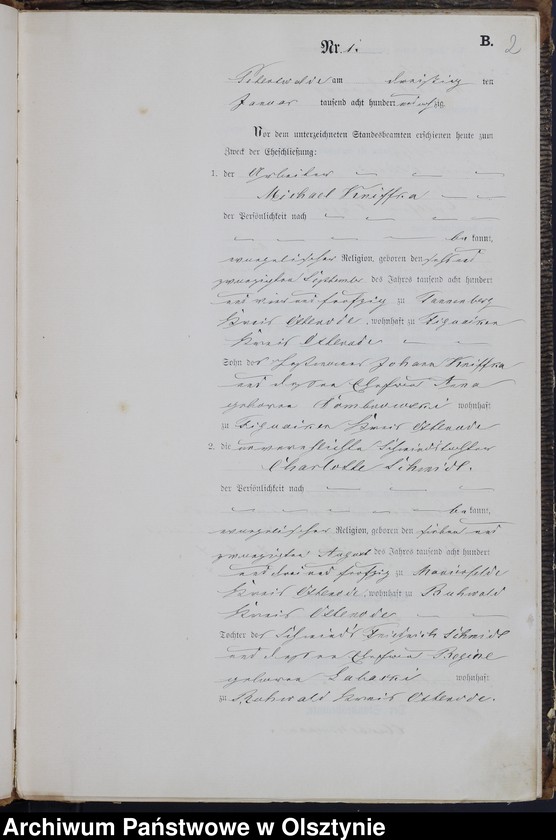 B. 2
Nr. 1.
am dreißig ten
Januar tausend acht hundert achtzig
Vor dem unterzeichneten Standesbeamten erschienen heute zum
Zweck der Eheschließung:
1. der Arbeiter
Michael Kniffka
der Persönlichkeit nach
be kannt,
evangelischer Religion, geboren den sechs und
zwanzigsten September des Jahres tausend acht hundert
und vier und fünfzig zu Tannenberg
Kreis Osterode, wohnhaft zu
Kreis Osterode
Sohn des Johann Kniffka
und dessen Ehefrau Anna
geborene Dombrowski wohnhaft
zu Kreis Osterode
2. die unverehelichte Schmiedstochter
Charlotte Schmidt.
der Persönlichkeit nach
be kannt,
evangelischer Religion, geboren den sieben und
zwanzigsten August des Jahres tausend acht hundert
und drei und fünfzig zu Marienfelde
Kreis Osterode, wohnhaft zu Ruhwald
Kreis Osterode
Tochter des Schmieds Friedrich Schmidt
und dessen Ehefrau Regine
geborene wohnhaft
zu Ruhwald Kreis Osterode.
Archiwum Państwowe w Olsztynie